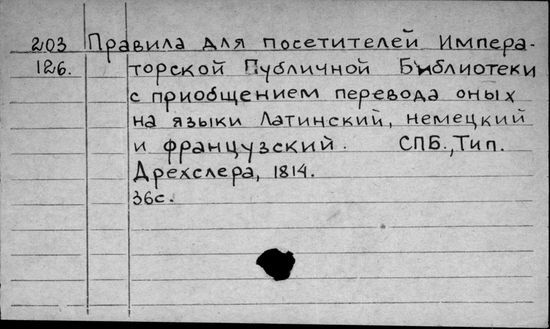 203 Правила для посетителей Импера-
126. торской Публичной Библиотеки
с приобщением перевода оных
на языки Латинский, немецкий
и французский. СПБ., Тип.
Дрехслера, 1814.
36с.